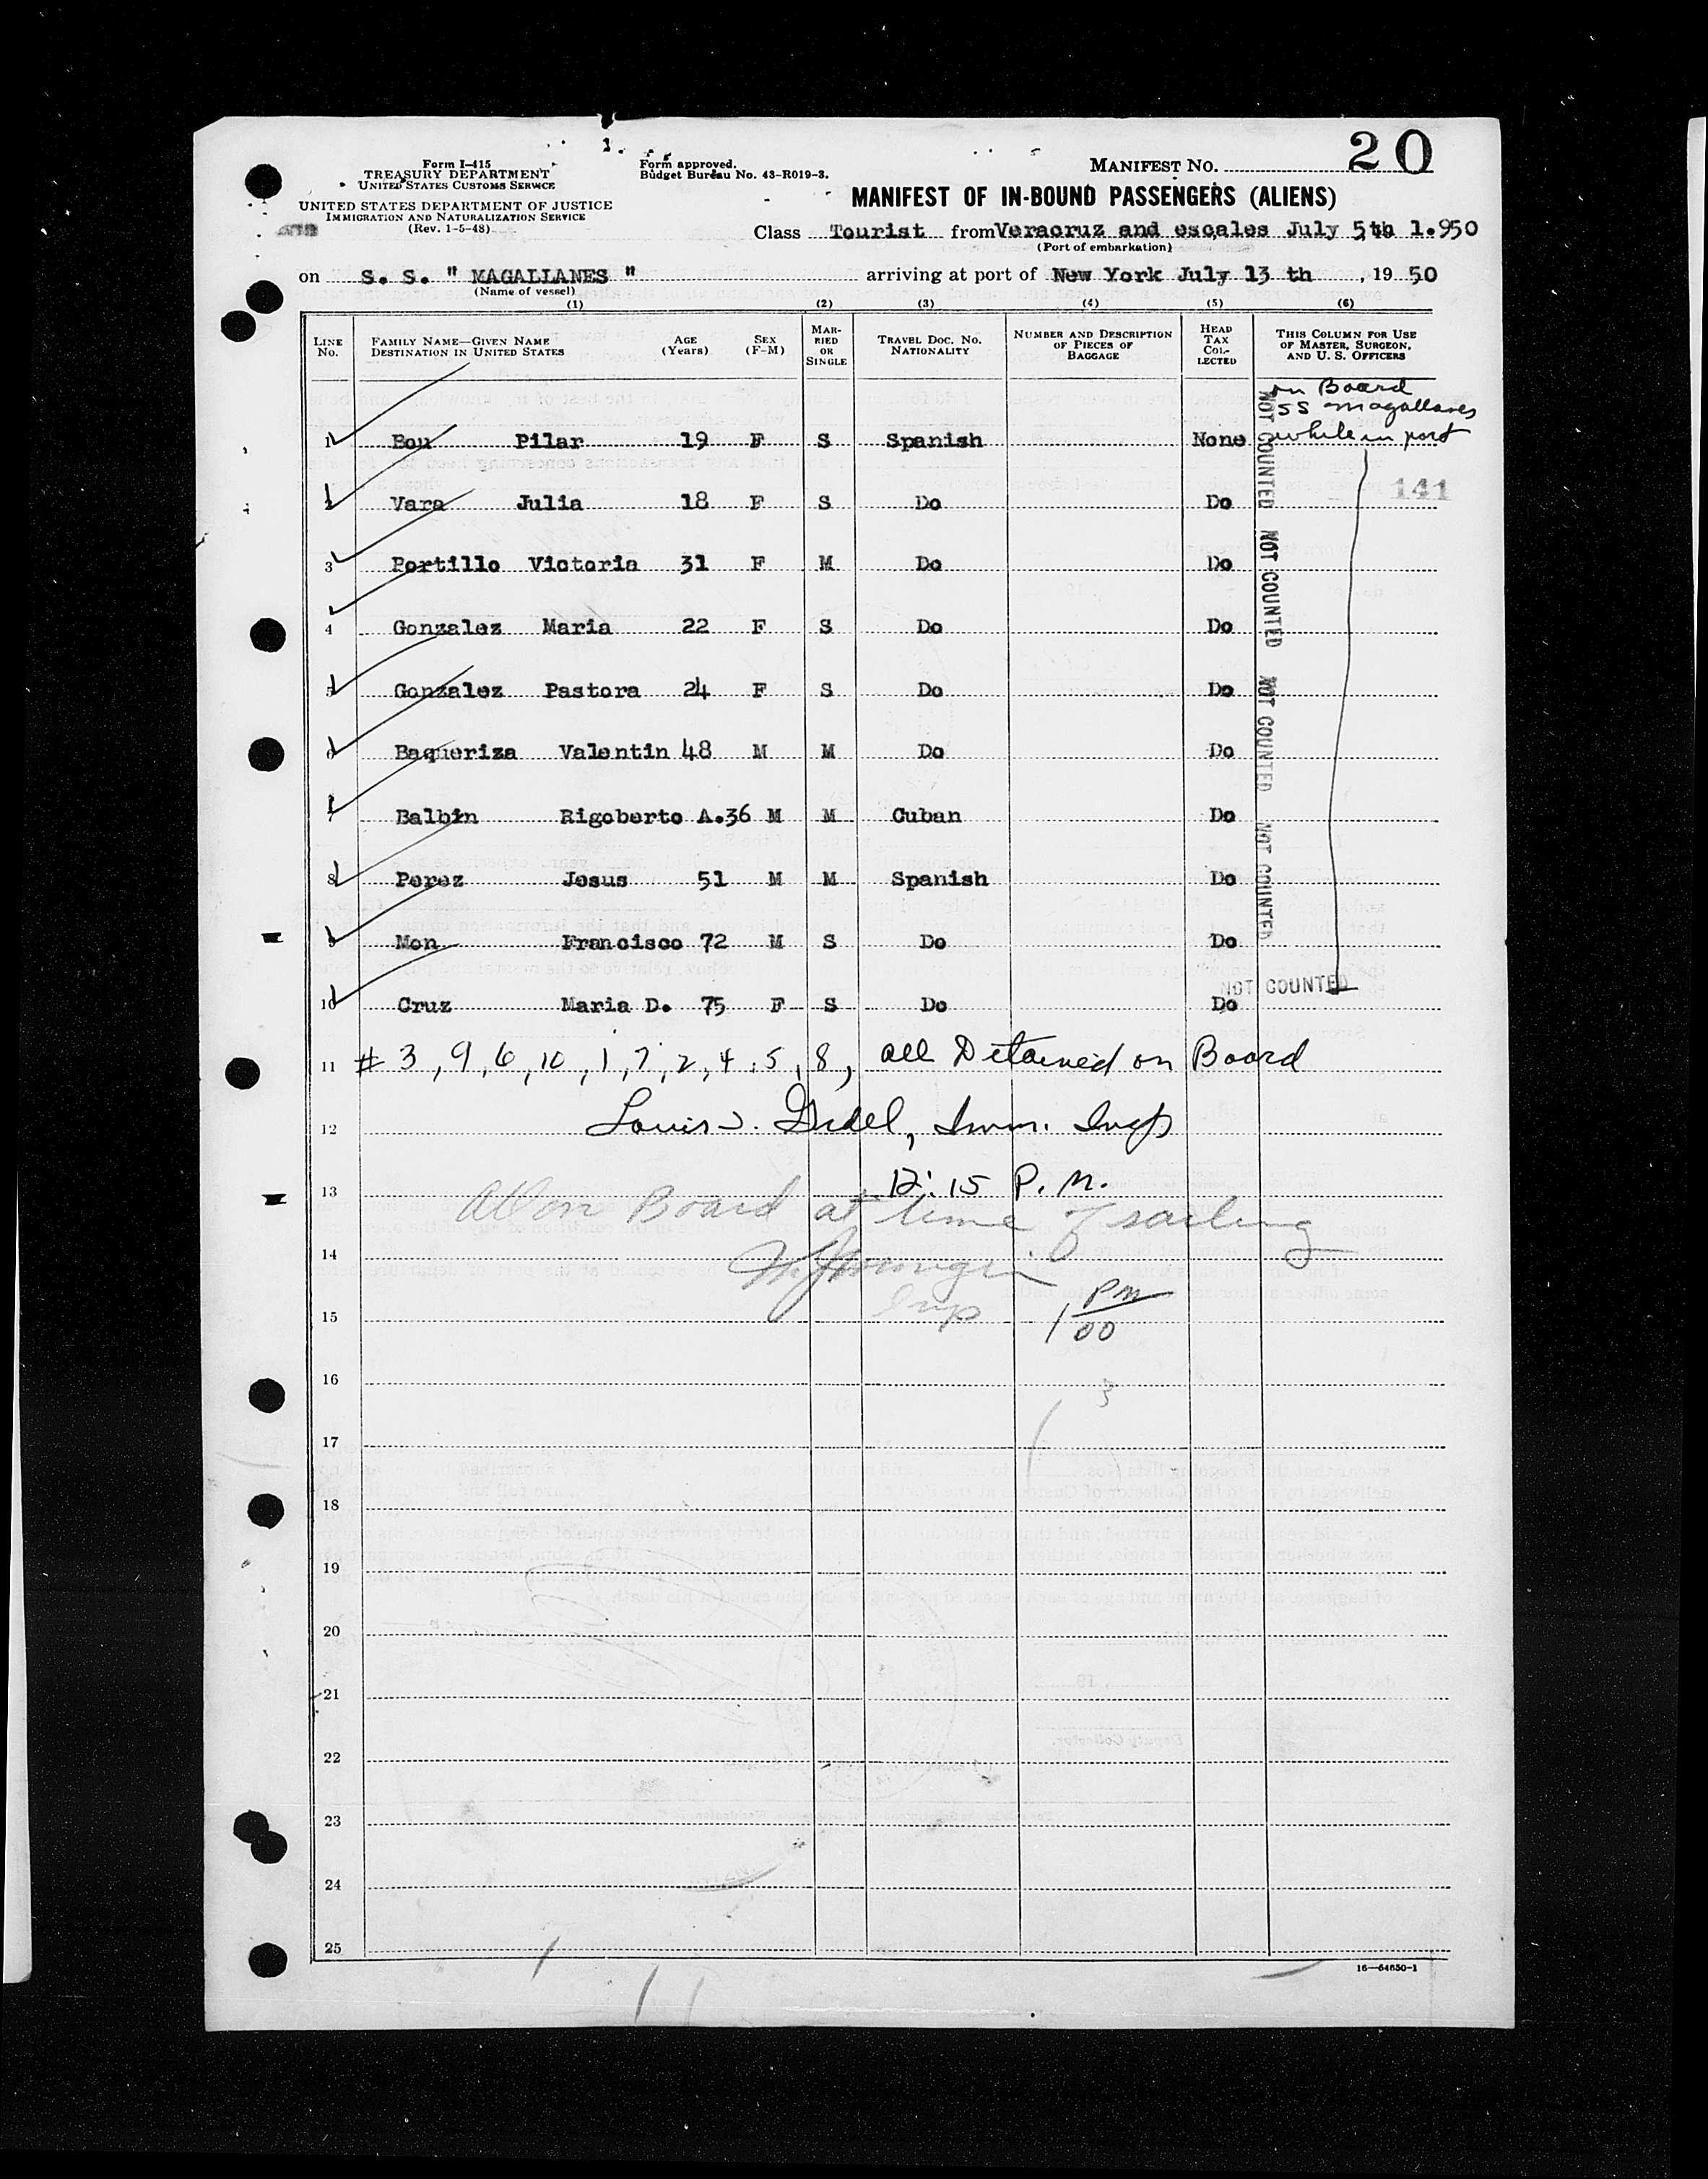 Form I-415
TREASURY DEPARTMENT
UNITED STATES CUSTOMS SERVICE
UNITED STATES DEPARTMENT OF JUSTICE
IMMIGRATION AND NATURALIZATION SERVICE
(Rev. 1-5-48)
Form approved.
Budget Bureau No. 43-R019-3.
MANIFEST NO. 20
MANIFEST OF IN-BOUND PASSENGERS (ALIENS)
Class Tourist from Veracruz and escales July 5th 1.950
(Port of embarkation)
on S. S. " MAGALLANES " arriving at port of New York July 13 th , 19 50
(Name of vessel)
(1) (2) (3) (4) (5) (6)
LINE NO. FAMILY NAME—GIVEN NAME DESTINATION IN UNITED STATES AGE (Years) SEX (F-M) MARRIED OR SINGLE TRAVEL DOC. NO. NATIONALITY NUMBER AND DESCRIPTION OF PIECES OF BAGGAGE HEAD TAX COLLECTED THIS COLUMN FOR USE OF MASTER, SURGEON, AND U. S. OFFICERS
on Board
SS Magallanes
while in port
1 Bou Pilar 19 F S Spanish None
141
2 Vara Julia 18 F S Do Do
3 Portillo Victoria 31 F M Do Do
4 Gonzalez Maria 22 F S Do Do
5 Gonzalez Pastora 24 F S Do Do
6 Baqueriza Valentin 48 M M Do Do
7 Balbin Rigoberto A. 36 M M Cuban Do
8 Perez Jesus 51 M M Spanish Do
9 Mon Francisco 72 M S Do Do
10 Cruz Maria D. 75 F S Do Do
NOT COUNTED NOT COUNTED NOT COUNTED NOT COUNTED
NOT COUNTED
11 # 3, 9, 6, 10, 1, 7, 2, 4, 5, 8, all Detained on Board
12 Louis Imm. Insp
13 12:15 P. M.
All on Board at time of sailing
14
Insp
15 1 00 PM
16 3
17
18
19
20
21
22
23
24
25
16—54650-1